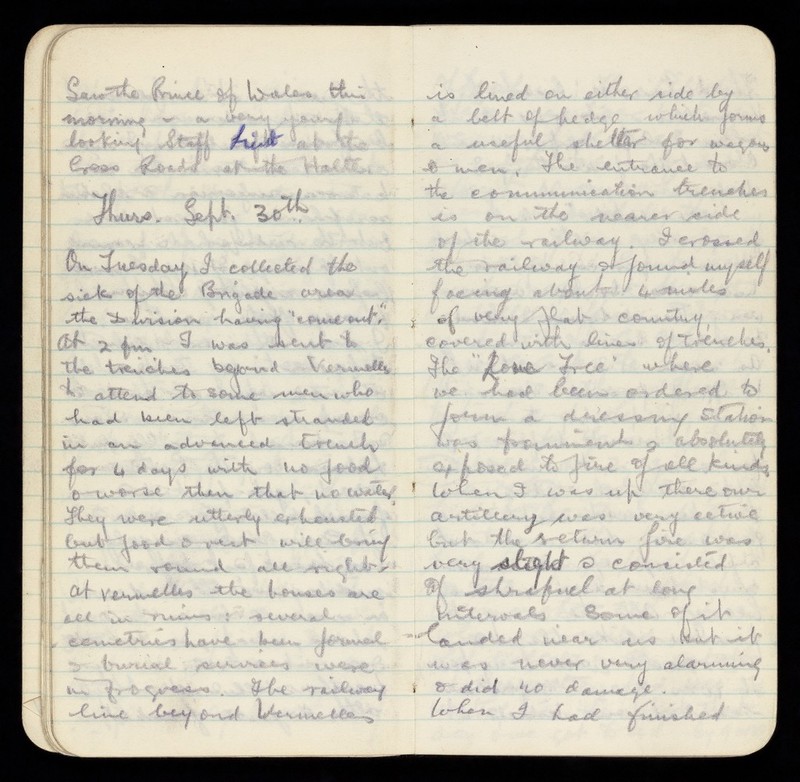 Saw the Prince of Wales this
morning - a very young
looking Staff Lieut at the
Cross Roads at the Halte.
Thurs. Sept. 30th
On Tuesday I collected the
sick of the Brigade area
the Division having "come out".
At 2 pm I was sent to
the trenches beyond Vermelles
to attend to some men who
had been left stranded
in an advanced trench
for 4 days with no food
& worse than that no water.
They were utterly exhausted
but food & rest will bring
them round all right.
At Vermelles the houses are
all in ruins: several
cemetries have been formed
& burial services were
in progress. The railway
line beyond Vermelles
is lined on either side by
a belt of hedge which forms
a useful shelter for wagons
& men. The entrance to
the communication trenches
is on the nearer side
of the railway. I crossed
the railway & found myself
facing about 4 miles
of very flat country,
covered with lines of trenches.
The "Lone Tree" where
we had been ordered to
form a dressing station
was prominent & absolutely
exposed to fire of all kinds.
When I was up there our
artillery was very active
but the return fire was
very slight & consisted
of shrapnel at long
intervals some of it
landed near us but it
was never very alarming
& did no damage.
When I had finished